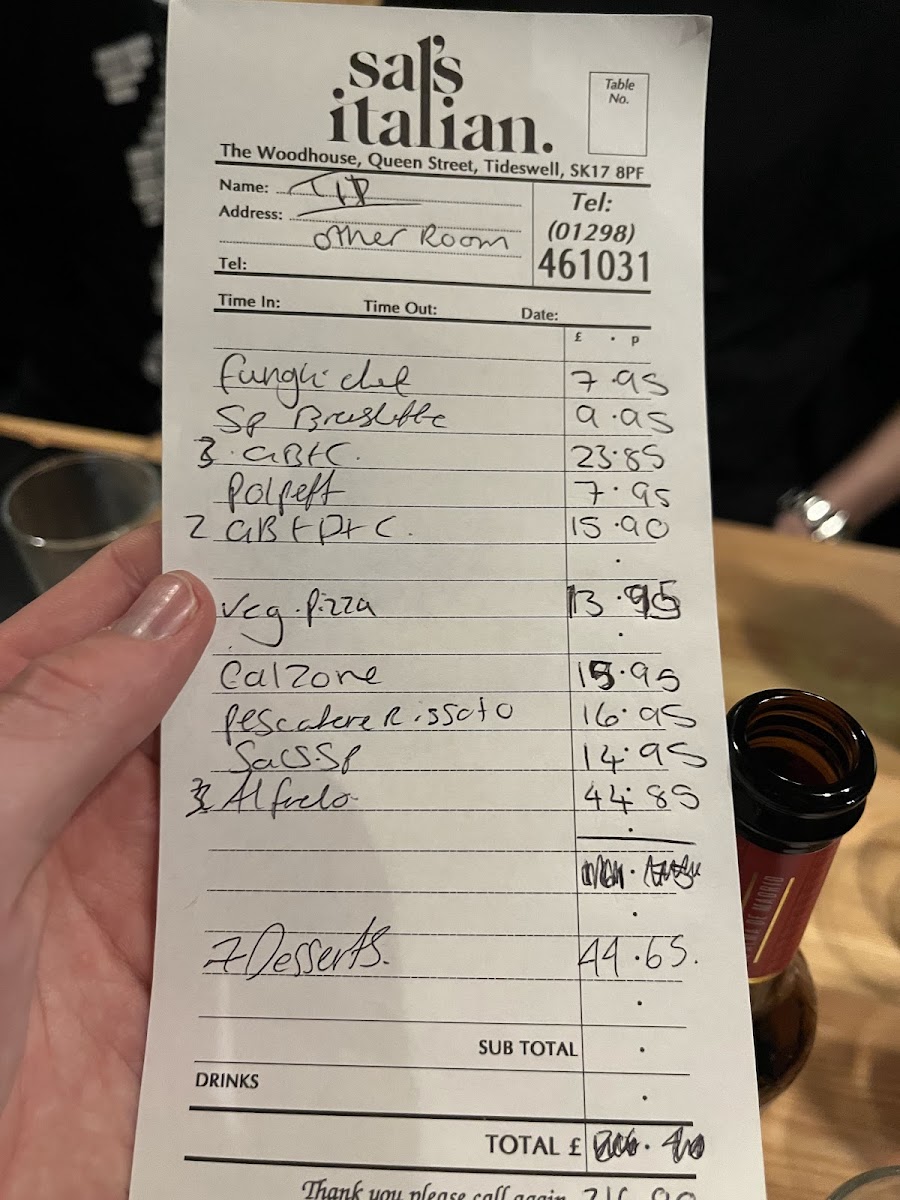 sal's
italian.
Table
No.
The Woodhouse, Queen Street, Tideswell, SK17 8PF
Name:
Address:
other Room
Tel:
Tel:
(01298)
461031
Time In: Time Out: Date:
£ . p
funghi chef 7.95
Sp 9.95
3. GB+C. 23.85
Polpett 7.95
2 GB+P+C. 15.90
Veg. Pizza 13.95
Calzone 15.95
Pescatere Rissoto 16.95
14.95
3 Alfredo 44.85
7 Desserts. 44.65.
SUB TOTAL
DRINKS
TOTAL £
Thank you please call again 216.90
DE MADRID